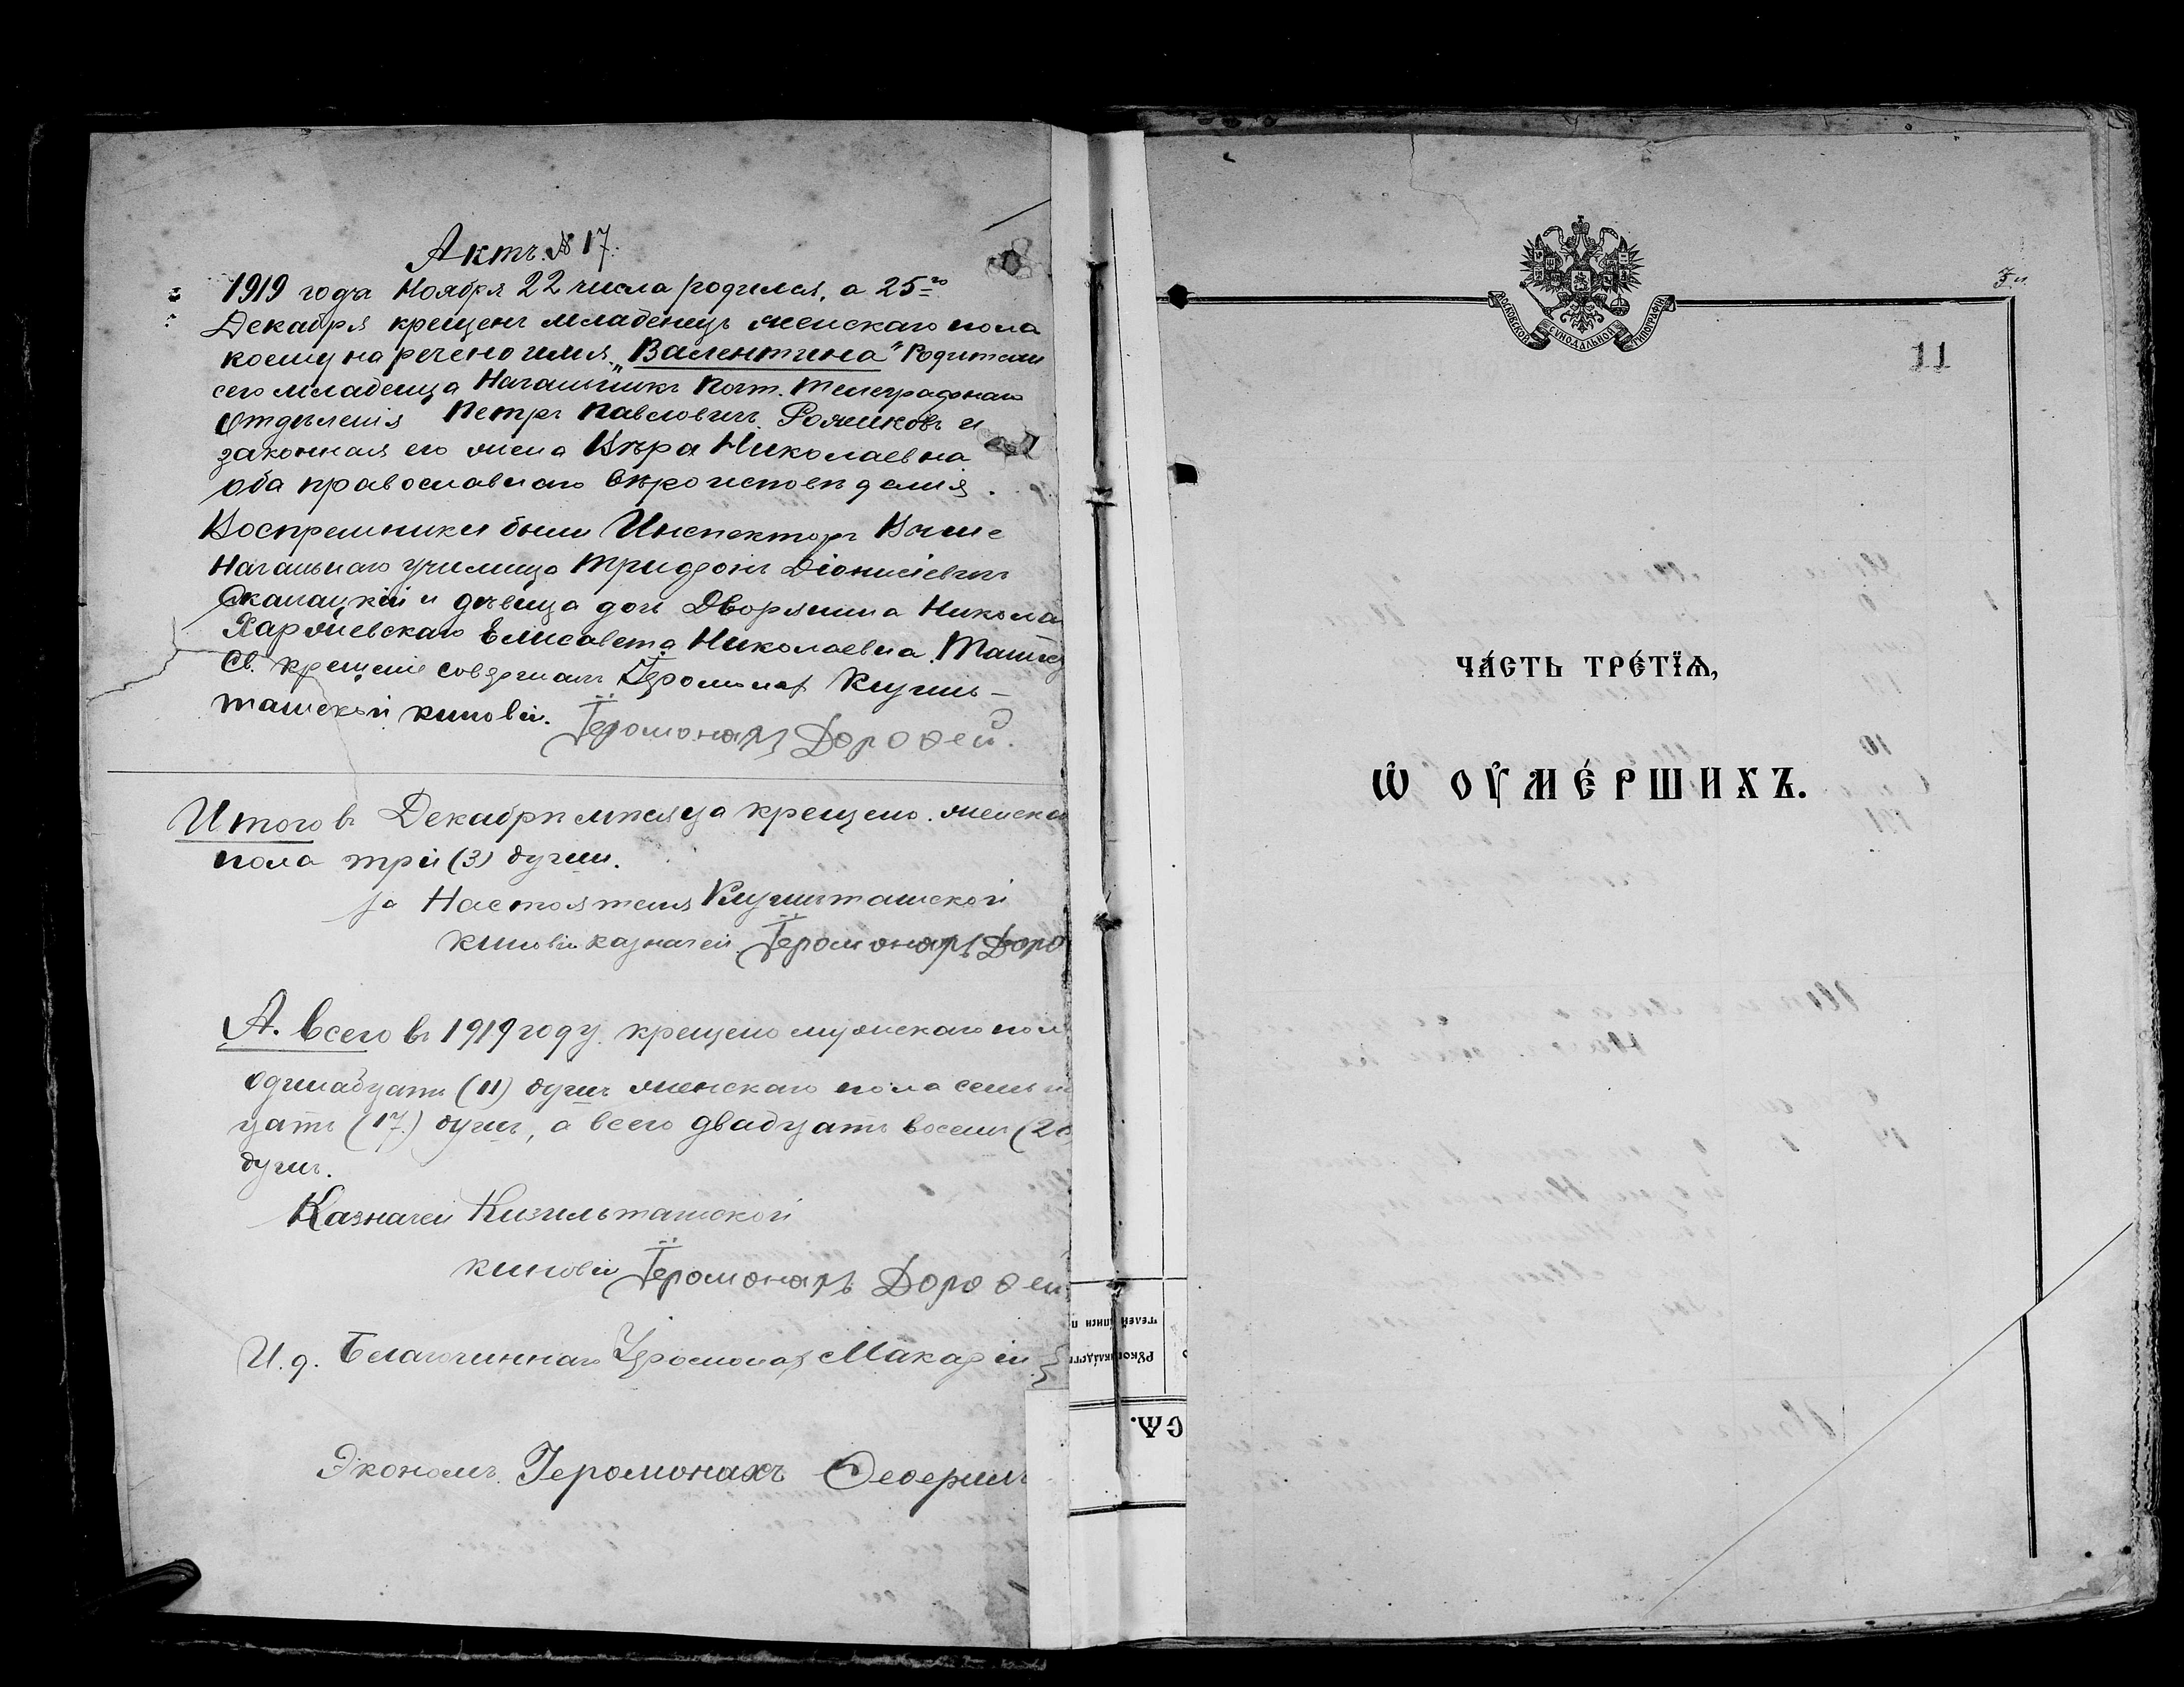 Актъ № 17.
1919 года Ноября 22 числа родился, а 25-го
Декабря крещенъ младенецъ женскаго пола
коему наречено имя „Валентина" Родители
сего младенца Начальникъ Почт. Телеграфнаго
Отдѣленія Петръ Павловичъ и
законная его жена Вѣра Николаевна
оба православнаго вѣроисповѣданія.
Воспреемники были Инспекторъ Высше
Начальнаго училища Діонисіевичъ
и дѣвица дочь Дворянина Никола
Елисавета Николаевна.
Св. крещеніе совершалъ Іеромонах Кизиль-
ташской киновіи. Іеромонахъ Дороѳей.
Итого въ Декабрѣ мѣсяца крещено женска
пола три (3) души.
за Настоятеля Кизилташской
киновіи казначей Іеромонахъ Доро
А всего въ 1919 году крещено мужскаго пол
одинадцать (11) душъ женскаго пола семьн
цать (17) душъ, а всего двадцать восемь (28
душъ.
Казначей Кизильташской
киновіи Іеромонахъ Дороѳей
И. д. Благочиннаго Іеромонах Макарій
Экономъ Іеромонахъ
телей
записи п
рꙋкопри
СѦ.
МОСКОВСКОЙ СѴНОДАЛЬНОЙ ТИПОГРАФІИ
11
ЧА́СТЬ ТРЕ́ТЇѦ,
Ѡ҆ ОУ҆МЕ́РШИХЪ.